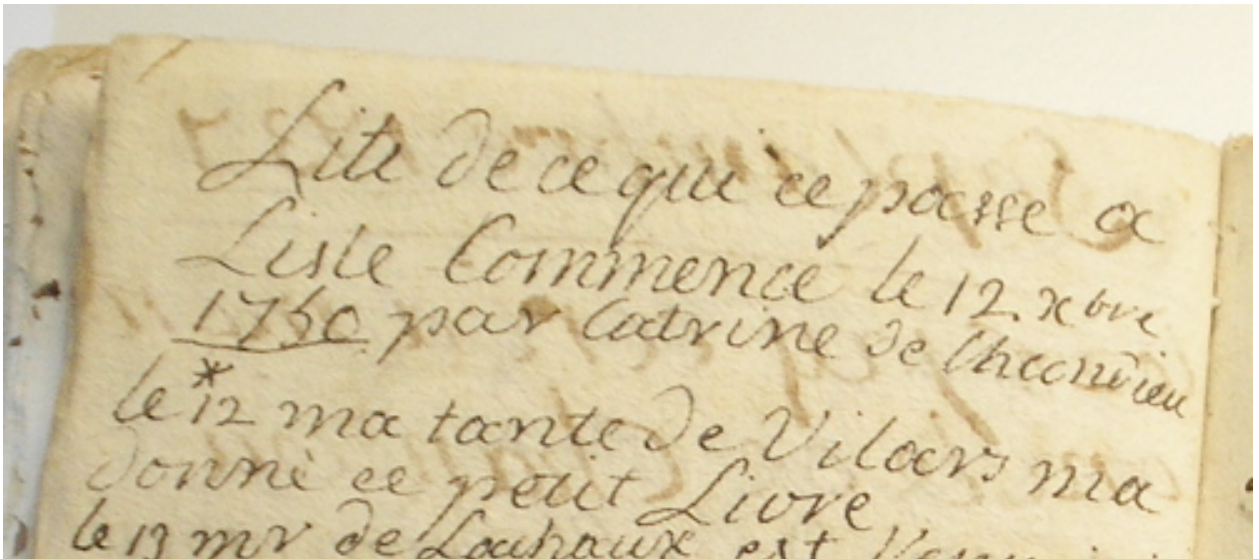 Liste de ce qui ce passe a
Lisle Commence le 12 xbre
1750 par Catrine de
le * 12 ma tante de Vilars ma
donné ce petit Livre
le 13 mr de est